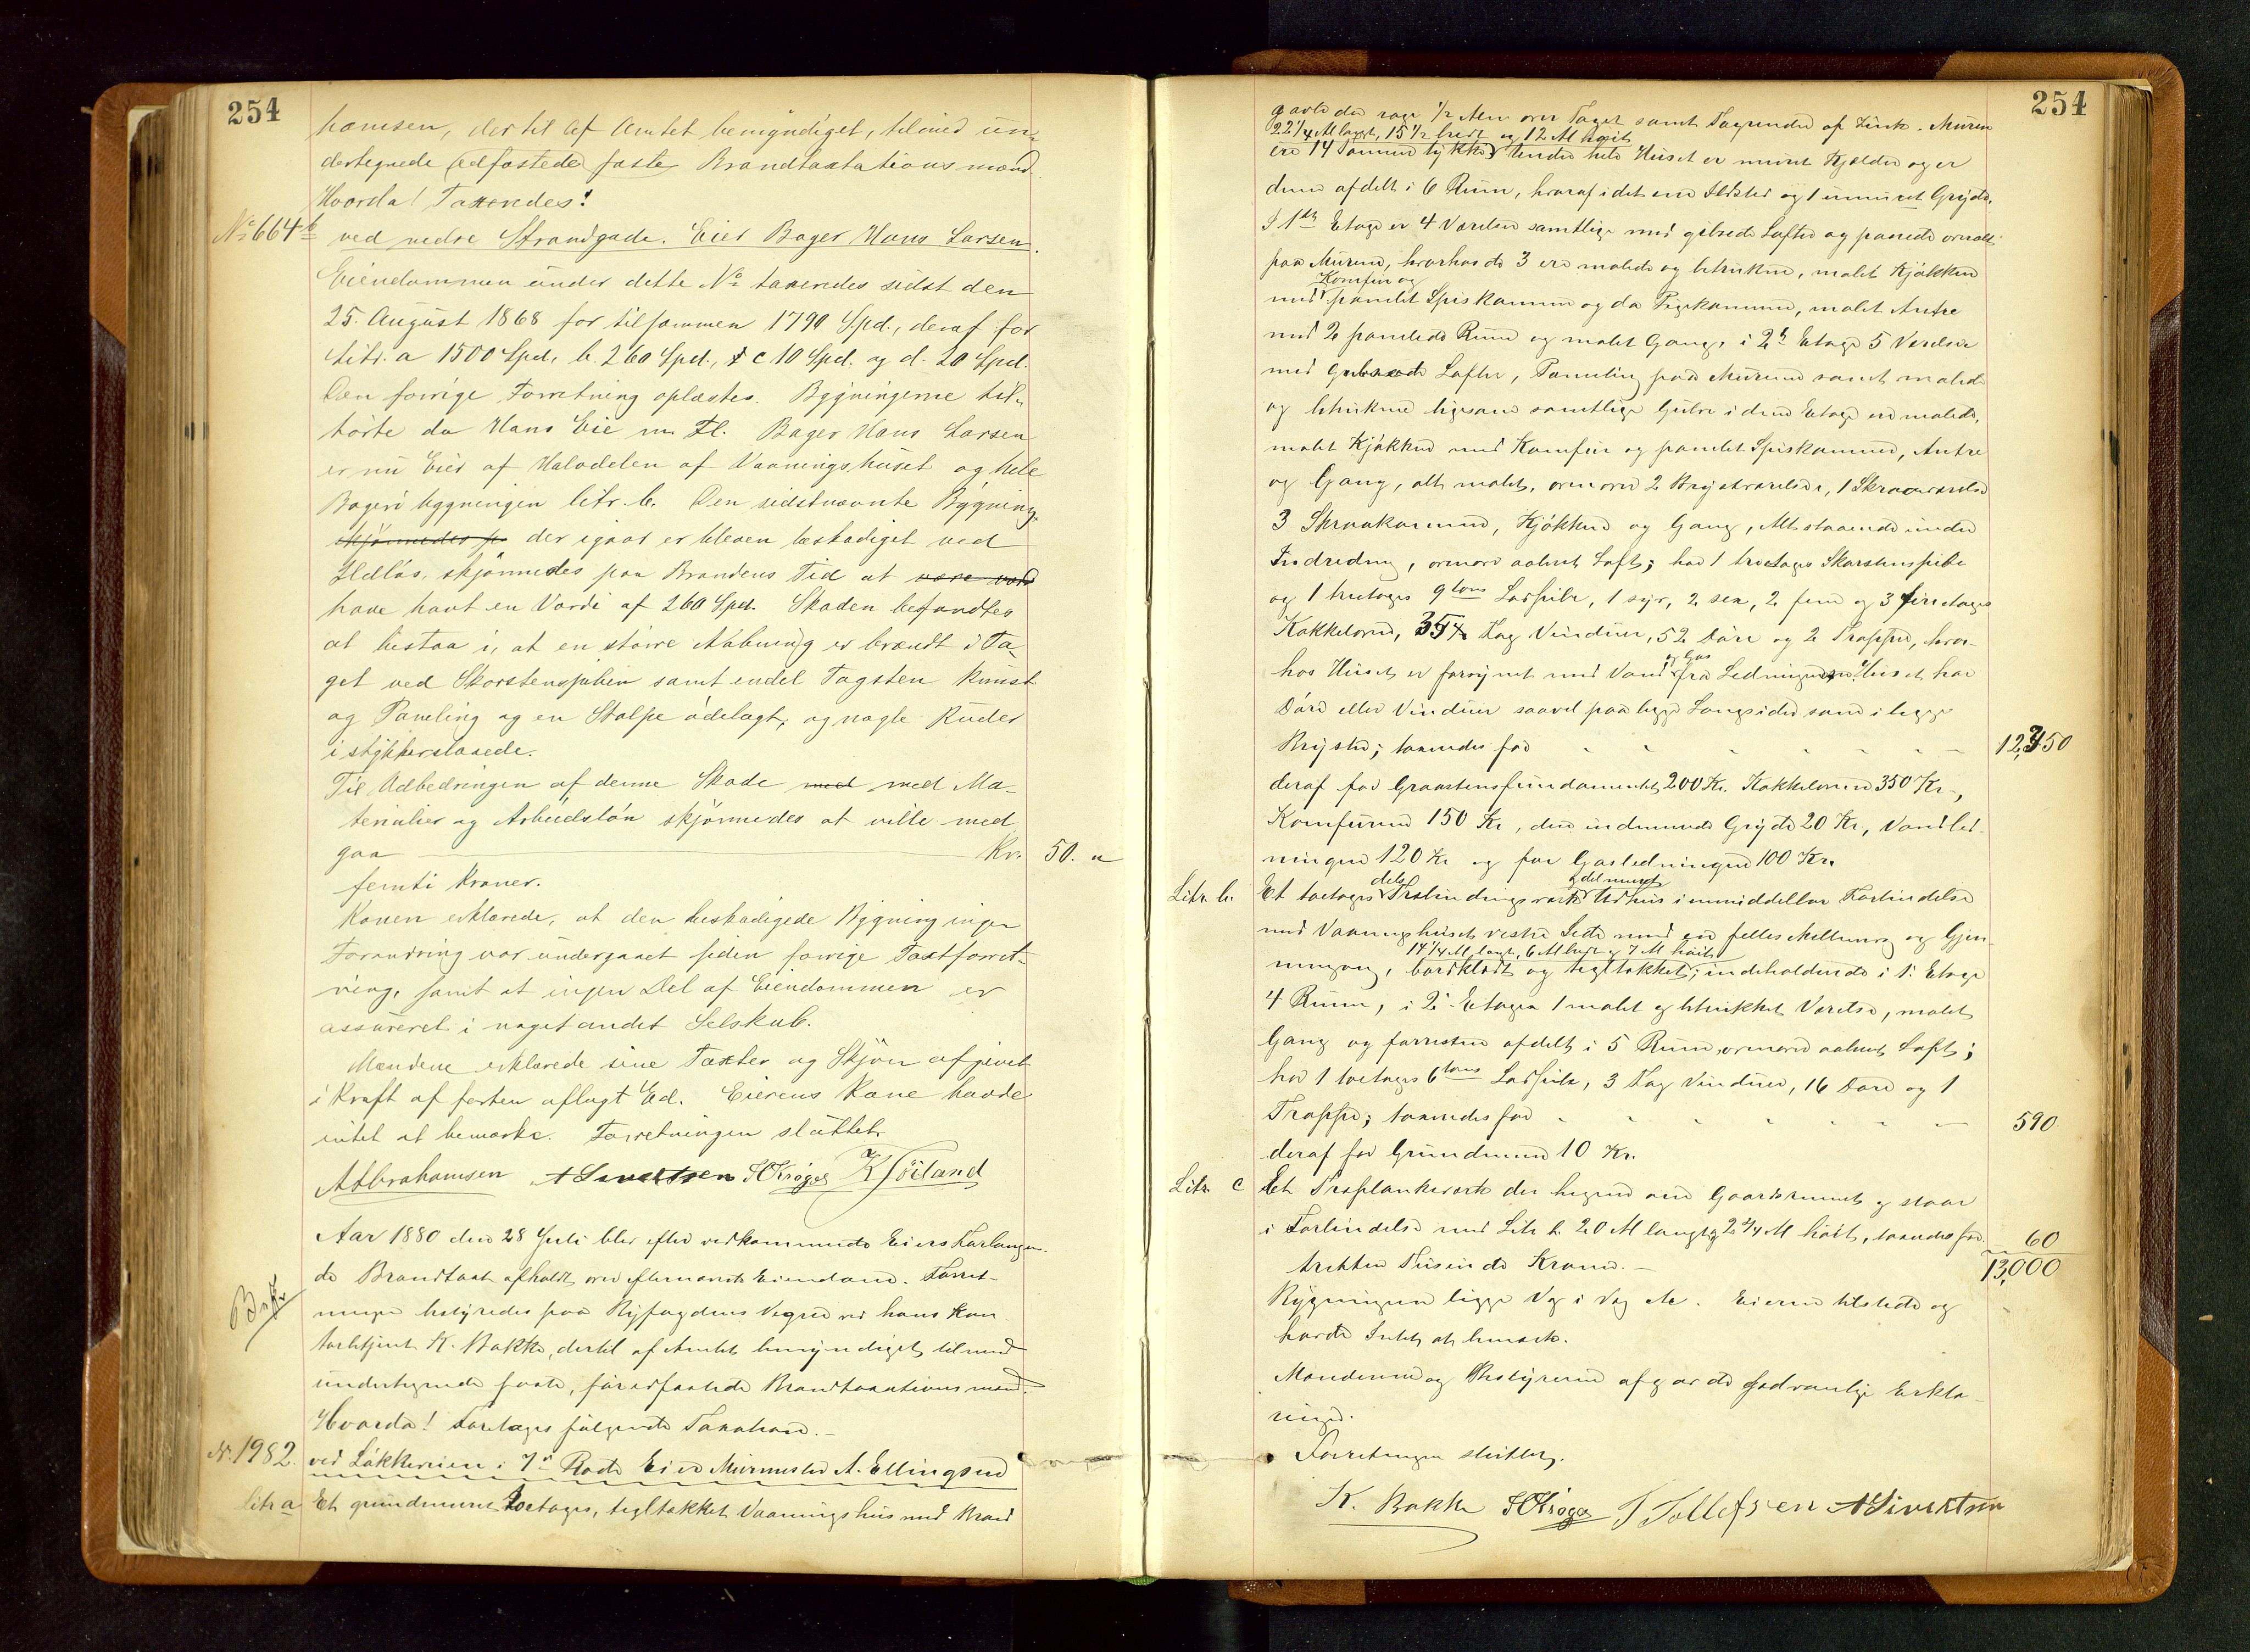 254
hamsen, dertil af Amtet bemyndiget, tilmed un-
dertegnede edfæstede faste Brandtaxtationsmænd.
Hvorda! Taxeredes:
No 664b ved nedre Strandgade. Eier Bager Hans Larsen.
Eiendommen under dette No taxeredes sidst den
25. August 1868 for tilsammen 1790 Spd., deraf for
Litr. a 1500 Spd, b. 260 Spd., c 10 Spd. og d. 20 Spd.
Den forrige Forretning oplæstes. Bygningerne til-
hørte da Hans Eie m. Fl. Bager Hans Larsen
er nu Eier af Halvdelen af Vaaningshuset og hele
Bageribygningen litr. b. Den sidstnævnte Bygning
skjønnedes p der igaar er bleven beskadiget ved
Ildløs, skjønnedes paa Brandens Tid at være værd
have havt en Værdi af 260 Spd. Skaden befandtes
at bestaa i, at en større Aabning er brændt i Ta-
get ved Skorstenspiben samt endel Tagsten knust
og Paneling og en Stolpe ødelagt, og nogle Ruder
i stykkerslaaede.
Til Udbedringen af denne Skade med med Ma-
terialier og Arbeidsløn skjønnedes at ville med
gaa Kr. 50. "
femti Kroner.
Konen erklærede, at den beskadigede Bygning ingen
Forandring var undergaaet siden forrige Taxtforret-
ning, samt at ingen Del af Eiendommen er
assureret i noget andet Selskab.
Mændene erklærede sine Taxter og Skjøn afgivet
i Kraft af forten aflagt Ed. Eierens Kone havde
intet at bemærke. Forretningen sluttet.
A Abrahamsen A Sivertsen H Krøger K Foiland
Aar 1880 den 28 Juli blev efter vedkommende Eiers Forlangen-
de Brandtaxt afholdt over efternævnte Eiendom. Forret-
ningen bestyredes paa Byfogdens Vegne ved hans Kon-
torbetjent K. Bakke, dertil af Amtet bemyndiget, tilmed
undertegnede faste, før edfæstede Brandtaxationsmænd.
Hvorda! Foretages følgende Taxation.-
N. 1982. ved Løkkeveien i 7de Rode Eier Murmester A. Ellingsen
Litr a Et grundmuret toetages, tegltækket Vaaningshus med Brand
254
gavle der rage 1/2 Alen over Taget samt Tagrender af Zink. Murene
22 1/4 Al langt, 15 1/2 bredt og 12 Al høit
ere 14 Tommer tykke. Under hele Huset er muret Kjælder og er
denne afdelt i 6 Rum, hvoraf i det ene Ildsted og 1 inmuret Gryde.
I 1ste Etage er 4 Værelser samtlige med gibsede Lofter og panede overalt
paa Murene, hvorhos de 3 ere malede og betrukne, malet Kjøkken
Komfur og
med panelet Spiskammer og do Pigekammer, malet Antre
med 2 panelede Rum og malet Gang, i 2den Etage 5 Værelser
med gibsede Lofter, Paneling paa Murene samt malede
og betrukne ligesom samtlige Gulve i denne Etage ere malede,
malet Kjøkken med Komfur og panelet Spiskammer, Antre
og Gang, alt malet, ovenover 2 Brystværelser, 1 Skraaværelse
3 Skraakammer, Kjøkken og Gang, Alt staaende under
Indredning, ovenover aabent Loft; har 1 treetages Skorstenspibe
og 1 treetages 9toms Ladpibe, 1 syv, 2 sex, 2 fem og 3 fireetages
Kakkelovne, 35 Fag Vinduer, 52 Døre og 2 Trapper, hvor-
og Gas
hos Huset er forsynet med Vand fra Ledningerne. Huset har
Døre eller Vinduer saavel paa begge Langsider som i begge
Bryster; taxeredes for 12,350
deraf for Graastensfundamentet 200 Kr. Kakkelovne 350 Kr.,
Komfurene 150 Kr, den indmurede Gryde 20 Kr, Vandled-
ningen 120 Kr og for Gasledningen 100 Kr.
dels og del muret
Litr. b. Et toetages Træbindingsværks Udhus i umiddelbar Forbindelse
med Vaaningshusets vestre Side med en felles Mellemvæg og Gjen-
14 1/4 Al langt, 6 Al bredt og 7 Al høit
nemgang, bordklædt og tegltækket; indeholdende i 1. Etage
4 Rum, i 2. Etagen 1 malet og betrukket Værelse, malet
Gang og forresten afdelt i 5 Rum, ovenover aabent Loft;
har 1 toetages 6toms Ladpibe, 3 Fag Vinduer, 16 Døre og 1
Trappe; taxeredes for 590
deraf for Grundmuren 10 Kr.
Litr. c Et Træplankeværk der hegner om Gaardsrummet og staar
i Forbindelse med Litr b. 20 Al langt og 2 3/4 Al høit, taxeredes for 60
tretten Tusinde Kroner.- 13,000
Bygningen ligger Væg i Væg etc. Eieren tilstede og
havde Intet at bemærke.
Mændene og Bestyreren afgav de sædvanlige Erklæ-
ringer.
Forretningen sluttet.
K. Bakke H Krøger T Tollefsen A Sivertsen